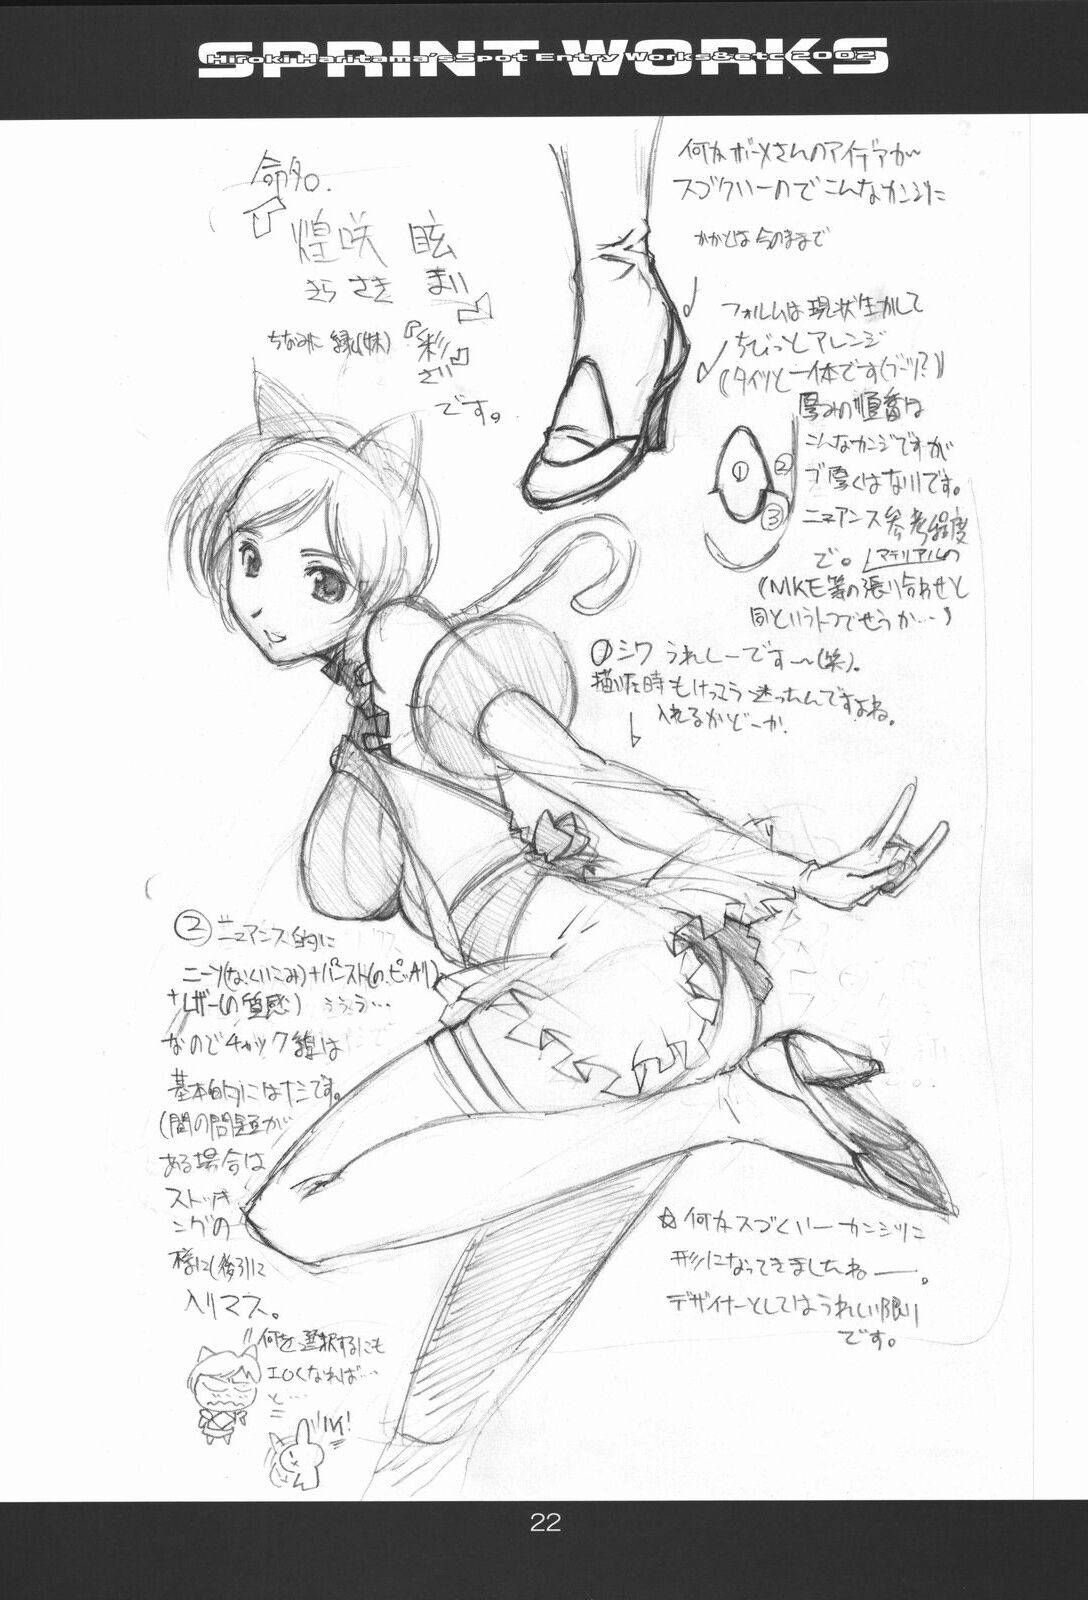 SPRINT WORKS
Hiroki Haritama's Spot Entry Works&etc 2002
命名。
煌咲 眩
きら さき まい
ちなみに 縁(妹)
『彩』
さい
です。
何かボーメさんのアイデアが
スゴクいーのでこんなカンジに
かかとは今のままで
フォルムは現状生かして
ちびっとアレンジ
(タイツと一体です(ブーツ?))
厚みの順番は
こんなカンジですが
厚くはないです。
ニュアンス参考程度
で。
マテリアルの
(NIKE等の張り合わせと
同じというトコでせうか…)
①
②
③
①シワ うれしーです〜(笑)。
描いた時もけっこう迷ったんですよね。
入れるかどーか。
②ニュアンス的に
ニーソ(なくいこみ)+パンスト(の、ピッタリ)
+レザー(の質感) ううう…
なのでチャック線は
基本的にはナシです。
(間の問題が
ある場合は
ストッキ
ングの
様に(後ろ)に
入リマス。
☆何かスづくいーカンジに
形になってきましたねー。
デザイナーとしてはうれしい限り
です。
"何を選択するにも
エロくなれば…
と…
ハイ!
22